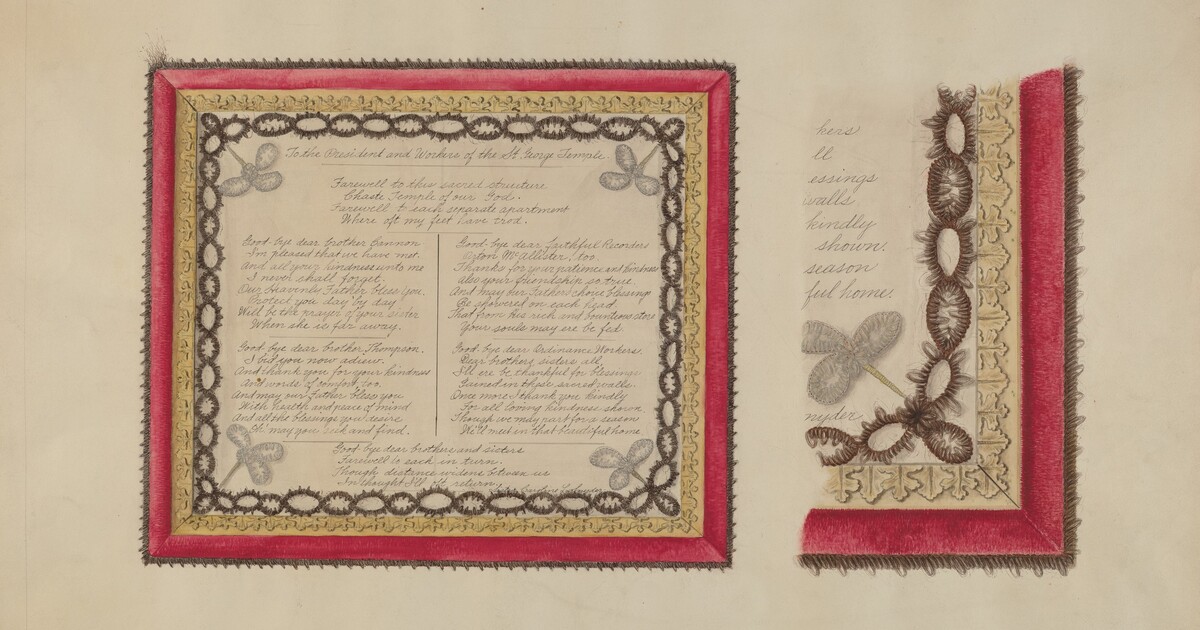 To the President and Workers of the St. George Temple.
Farewell to this sacred structure
Chaste Temple of our God.
Farewell to each separate apartment
Where oft my feet have trod.
Good bye dear brother Cannon
I'm pleased that we have met.
And all your kindness unto me
I never shall forget.
Our Heavenly Father bless you.
Protect you day by day
Will be the prayer of your sister
When she is far away.
Good bye dear brother Thompson.
I bid you now adieu.
And thank you for your kindness
And words of comfort, too.
And may our Father bless you
With health and peace of mind
And all the blessings you desire
may you seek and find.
Good bye dear faithful Recorders
McAllister, too.
Thanks for your patience and kindness
also your friendship so true.
And may her Father's choice blessings
Be showered on each head.
That from his rich and bounteous store
Your souls may ere be fed.
Good bye dear Ordinance Workers.
Dear brothers sisters all,
I'll ere be thankful for blessings
Gained in these sacred walls.
Once more I thank you kindly
For all loving kindness shown
Though we may part for a season
We'll meet in that beautiful home
Good bye dear brothers and sisters
Farewell to each in turn.
Though distance widens between us
In thought I'll oft return
hers
ll
essings
walls
kindly
shown.
season
ful home.
nyder